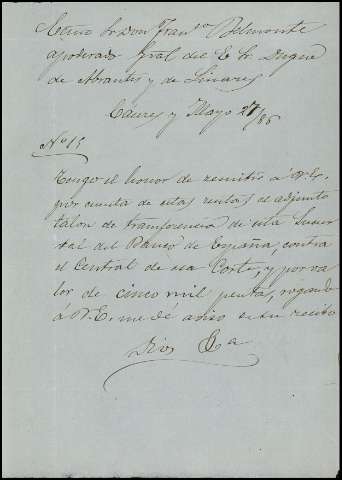 Excmo Sr Don Franco Belmonte
apoderado Gral del E. Sr. Duque
de Abrantes y de Linares
Caceres y Mayo 27/86
Nº 15
Tengo el honor de remitir á V.E,
por cuenta de estas rentas el adjunto
talon de transferencia de esta Sucur
sal del Banco de España, contra
el Central de esa Corte, y por va
lor de cinco mil pesetas, rogando
á V.E. me dé aviso de su recibo
Dios &a